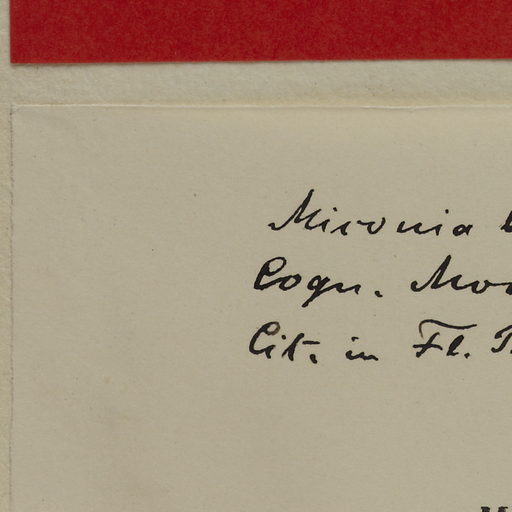 Miconia
Cogn.
Cit. in Fl.